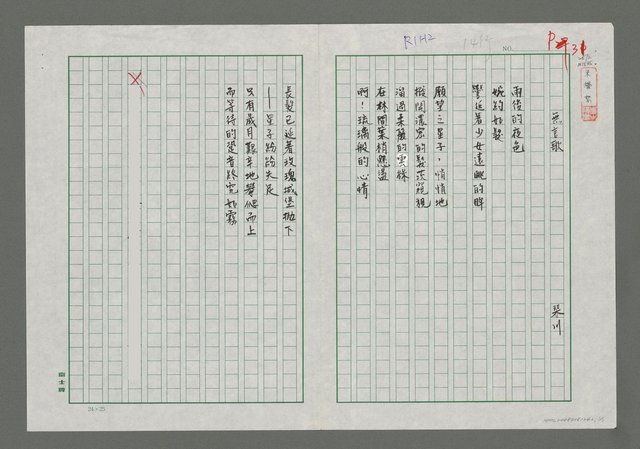 R1H2
NO.
無言歌
琹川
雨後的夜色
婉約如髮
攀延著少女遠眺的眸
願望之星子,悄悄地
撥開濃密的髮茨窺視
溜過柔藍的雲絲
在林間葉梢懸盪
啊!琉璃般的心情
長髮已延著玫瑰城堡拋下
—星子紛紛失足
只有歲月艱辛地攀偲而上
而等待的跫音終究如霧
24×25